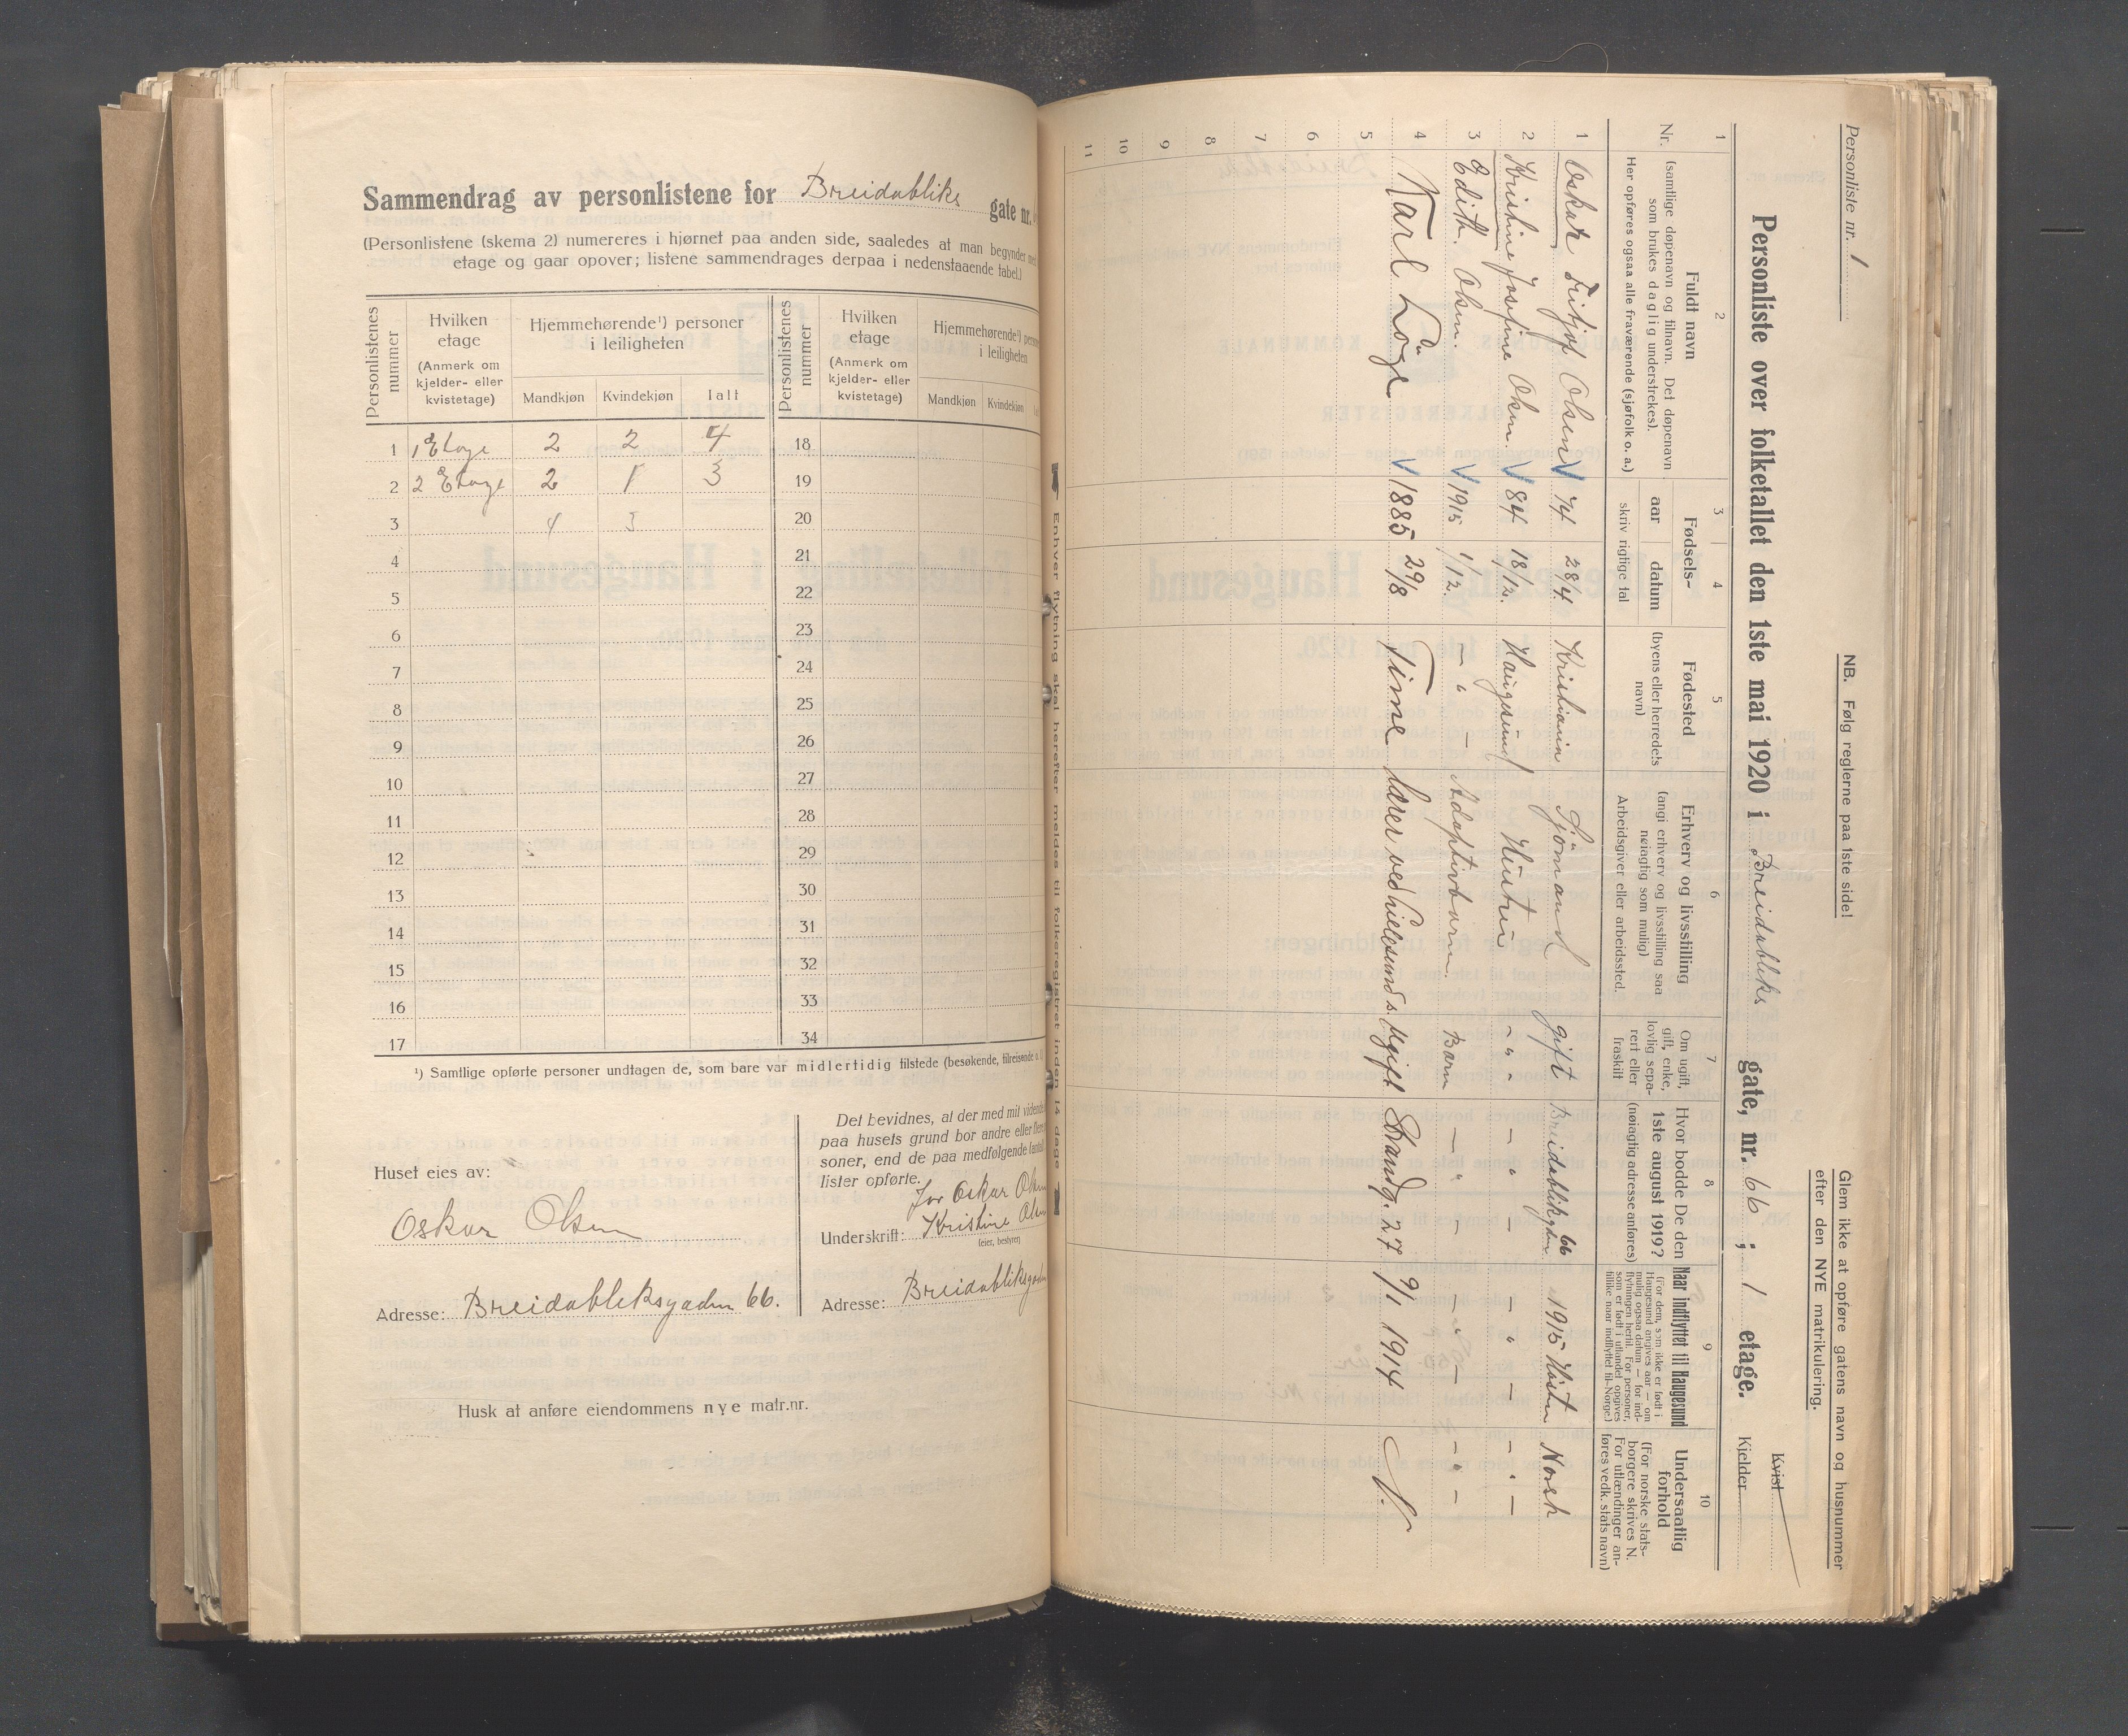 Sammendrag av personlistene for Breidabliks gate nr.
(Personlistene (skema 2) numereres i hjørnet paa anden side, saaledes at man begynder med
etage og gaar opover; listene sammendrages derpaa i nedenstaaende tabel.)
Personlistenes nummer
Hvilken etage
(Anmerk om kjelder- eller kvistetage)
Hjemmehørende¹) personer i leiligheten
Mandkjøn Kvindekjøn Ialt
Personlistenes nummer
Hvilken etage
(Anmerk om kjelder- eller kvistetage)
Hjemmehørende¹)
i leiligheten
Mandkjøn Kvindekjøn
1 1 Etage 2 2 4 18
2 2 Etage 2 1 3 19
3 4 3 20
4 21
5 22
6 23
7 24
8 25
9 26
10 27
11 28
12 29
13 30
14 31
15 32
16 33
17 34
¹) Samtlige opførte personer undtagen de, som bare var midlertidig tilstede (besøkende, tilreisende
Huset eies av:
Oskar Olsen
Adresse: Breidabliksgaden 66.
Det bevidnes, at der med mit vidende
paa husets grund bor andre eller flere
soner, end de paa medfølgende
lister opførte.
for Oskar Olsen
Underskrift: Kristine Olsen
(eier, bestyrer)
Adresse: Breidabliksgaden
Husk at anføre eiendommens nye matr.nr.
Enhver flytning skal herefter meldes til folkeregistret inden 14 dage
Personliste nr. 1
NB. Følg reglerne paa 1ste side!
Glem ikke at opføre gatens navn og husnummer
efter den NYE matrikulering.
Personliste over folketallet den 1ste mai 1920 i Breidabliks gate, nr. 66 ; 1 etage.
Kvist
Kjelder
1 2 3 4 5 6 7 8 9 10
Nr.
Fuldt navn
(samtlige døpenavn og tilnavn. Det døpenavn
som brukes daglig understrekes).
Her opføres ogsaa alle fraværende (sjøfolk o. a.)
Fødsels-
aar datum
skriv rigtige tal
Fødested
(byens eller herredets
navn)
Erhverv og livsstilling
(angi erhverv og livsstilling saa
nøiagtig som mulig)
Arbeidsgiver eller arbeidssted.
Om ugift,
gift, enke,
lovlig sepa-
rert eller
fraskilt
Hvor bodde De den
1ste august 1919?
(nøiagtig adresse anføres)
Naar indflyttet til Haugesund
(For dem, som ikke er født i
Haugesund angives aar — om
mulig ogsaa datum — for ind-
flytningen hertil. For personer,
som er født i utlandet opgives
tillike naar indflyttet til Norge.)
Undersaatlig
forhold
(For norske stats-
borgere skrives N.
For utlændinger an-
føres vedk. stats navn)
1 Oskar Fritjof Olsen V 74 28/4 Kristiania Sjömand gift Breidabliksgaden 66 1915 Hösten Norsk
2 Kristine Josefine Olsen. V 84 18/12. Haugesund Hustru " " — " — — " — — " —
3 Edith. Olsen. V 1915 1/12. — " — Adoptivbarn. Barn — " — — " — — " —
4 Karl Löge V 1885 29/8 Time Lærer ved Ugift Strandg. 27 9/1 1914 N.
5
6
7
8
9
10
11